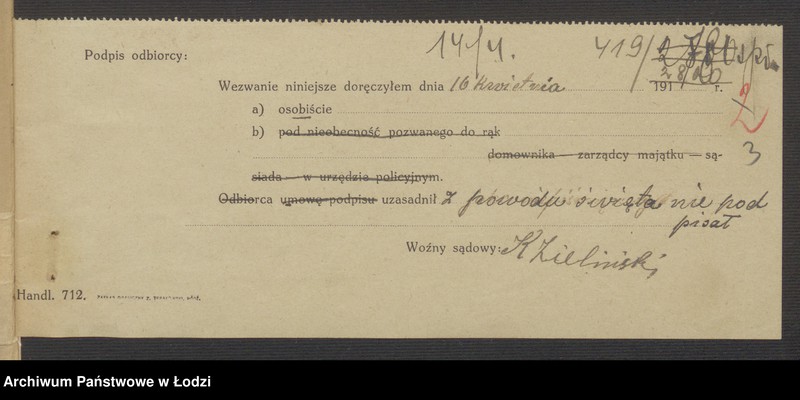 14/4. 419/
Podpis odbiorcy:
28/20
Wezwanie niniejsze doręczyłem dnia 16 kwietnia 191 r.
a) osobiście
2
b) pod nieobecność pozwanego do rąk
domownika — zarządcy majątku — są-
3
siada — w urzędzie policyjnym.
Odbiorca umowę podpisu uzasadnił z powodu święta nie pod
pisał
Woźny sądowy: KZieliński
Handl. 712.
Archiwum Państwowe w Łodzi